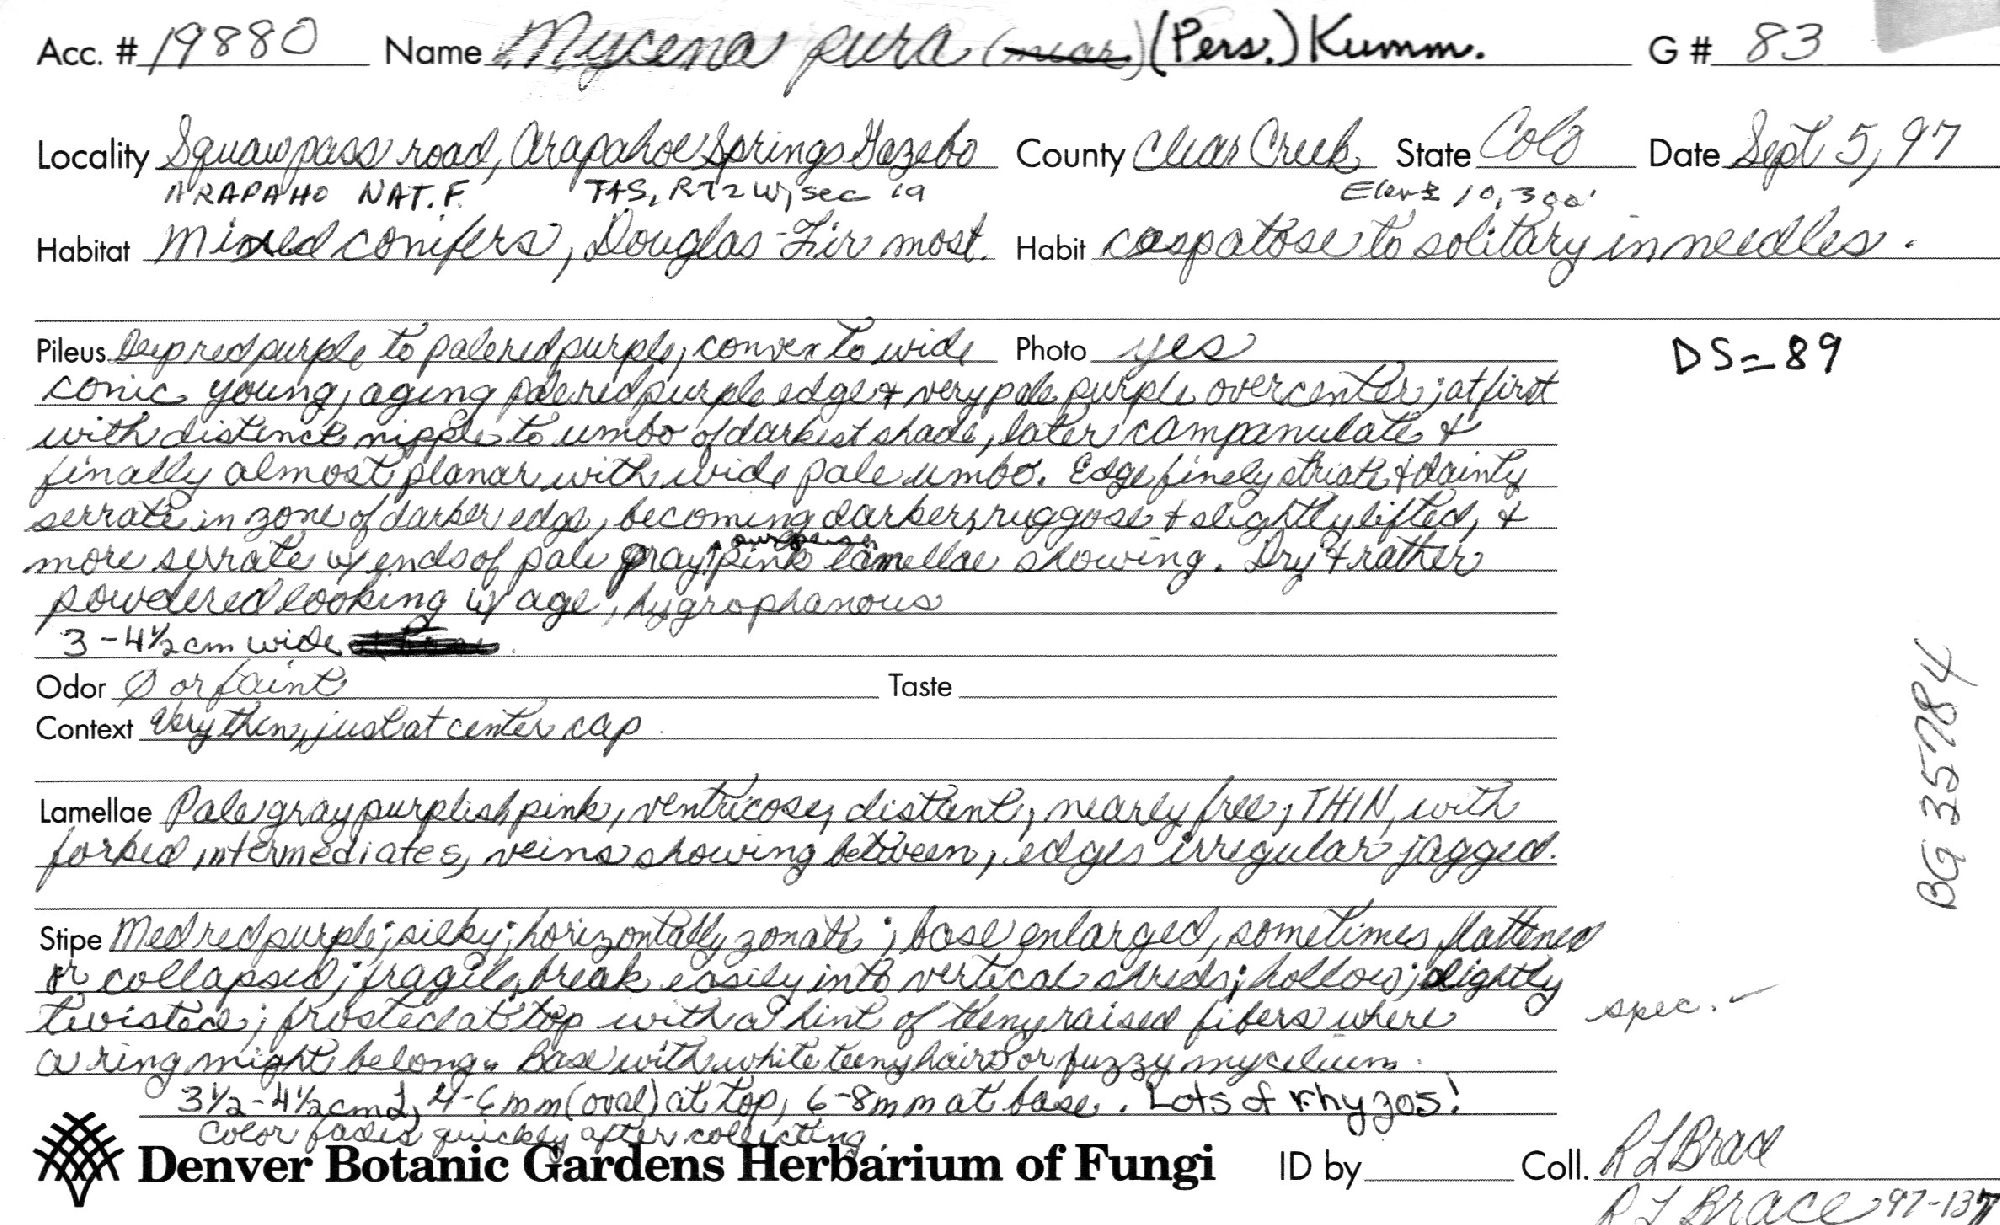 Acc. # 19880 Name Mycena pura (near) (Pers.) Kumm. G # 83
Locality Squaw pass road, Arapahoe Springs Gazebo County Clear Creek State Colo Date Sept 5, 97
ARAPAHO NAT. F. T4S, R72W, sec 19 Elev ± 10,300'
Habitat Mixed conifers, Douglas-Fir most. Habit caespatose to solitary in needles.
Pileus Deep red purple to pale red purple, convex to wide Photo yes DS=89
conic young, aging pale red purple edge & very pale purple over center; at first
with distinct nipple to umbo of darkest shade, later campanulate &
finally almost planar with wide pale umbo. Edge finely striate & dainty
serrate in zone of darker edge, becoming darker, ruggose & slightly lifted, &
more serrate w/ ends of pale gray purplish pink lamellae showing. Dry & rather
powdered looking w/ age, hygrophanous
3-4½ cm wide
Odor Ø or faint Taste
Context Very thin, just at center cap
BG 35784
Lamellae Pale gray purplish pink, ventricose, distant, nearly free, THIN, with
forked intermediates, veins showing between, edges irregular jagged.
Stipe Med red purple; silky; horizontally zonate; base enlarged, sometimes flattened
or collapsed; fragile, break easily into vertical shreds; hollow; slightly
twisted; frosted at top with a hint of teeny raised fibers where spec. ✓
a ring might belong. Base with white teeny hairs or fuzzy mycelium.
3½-4½ cm L, 4-6 mm (oval) at top, 6-8 mm at base. Lots of rhyzos!
Color fades quickly after collecting.
Denver Botanic Gardens Herbarium of Fungi ID by Coll. R L Brace
R L BRACE 97-137